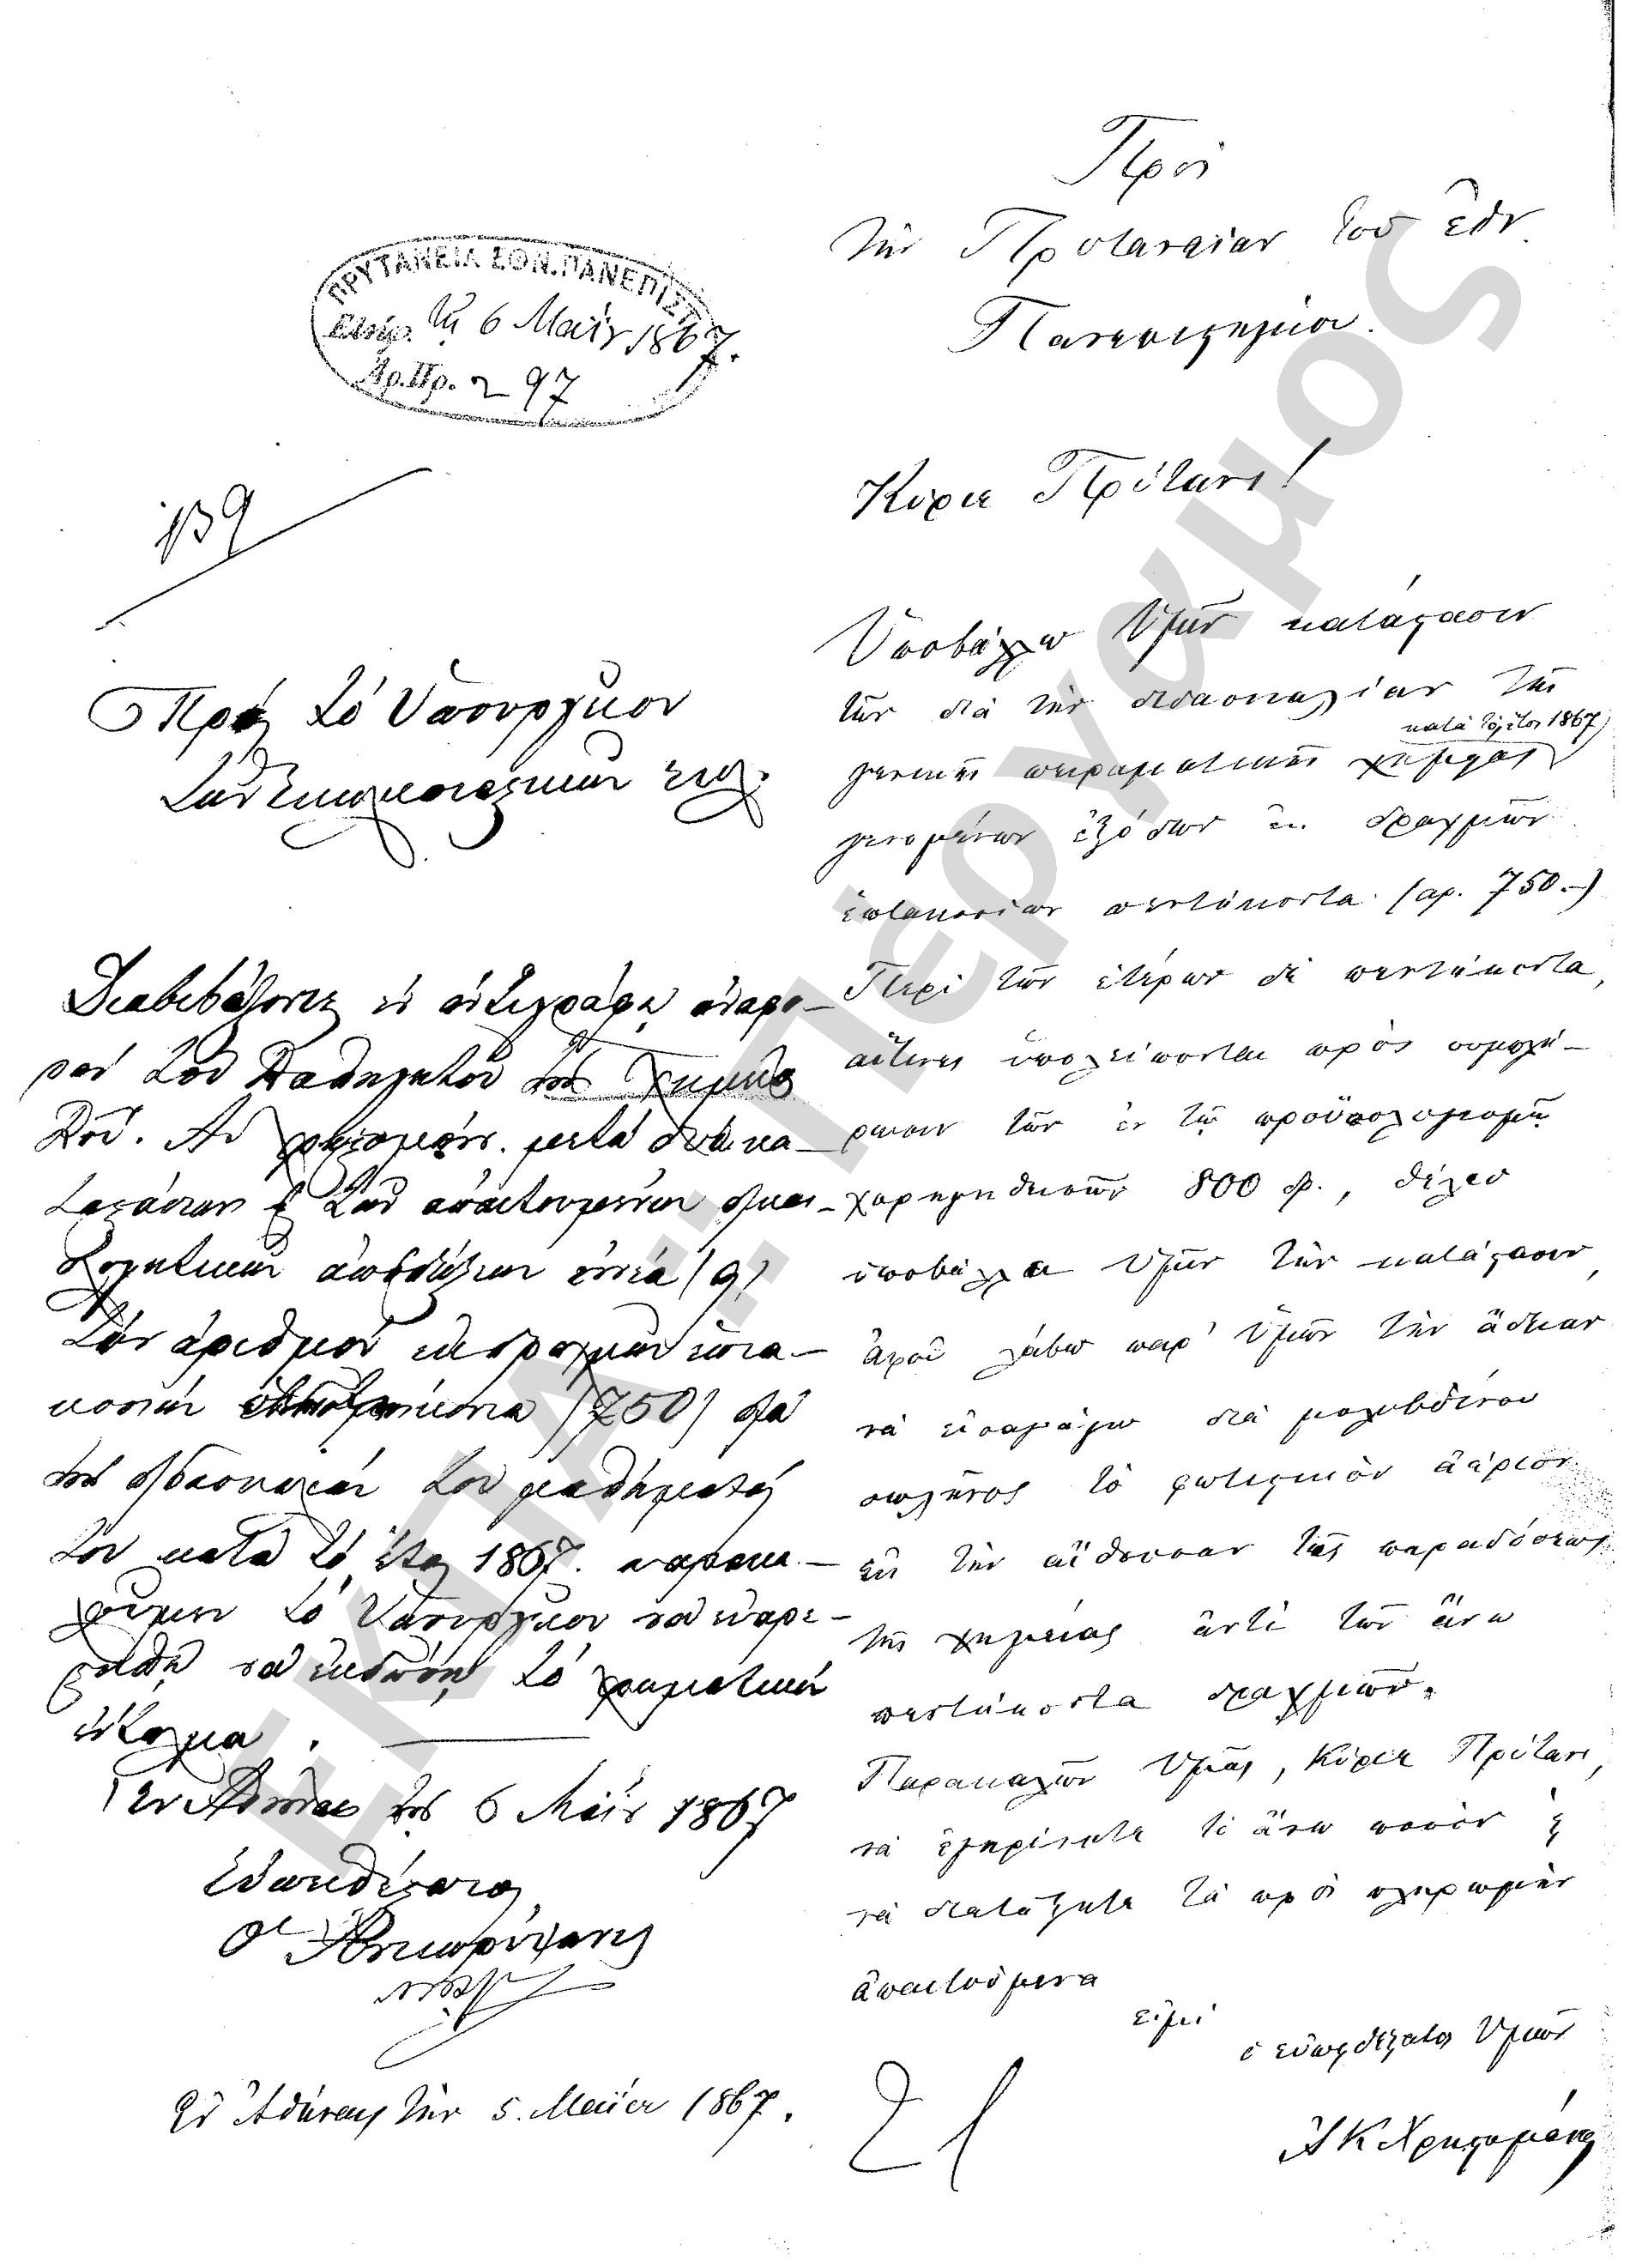 ΠΡΥΤΑΝΕΙΑ ΕΘΝ. ΠΑΝΕΠΙΣΤ
τῇ 6 Μαΐου 1867.
Ἀρ. Πρ. 297
139
Πρὸς τὸ Ὑπουργεῖον
τῶν Ἐκκλησιαστικῶν κτλ.
Διαβιβάζοντες ἐν ἀντιγράφῳ ἀναφο-
ρὰν τοῦ Καθηγητοῦ τῆς Χημείας
Κου. Α. Χρηστομάνου μετὰ
τῶν ἀπαιτουμένων δικαι-
ολογητικῶν ἀποδείξεων ἐννέα (9)
τὸν ἀριθμὸν ἐκ δραχμῶν ἑπτα-
κοσίων πεντήκοντα (750) διὰ
τὴν διδασκαλίαν τοῦ μαθήματός
του κατὰ τὸ ἔτος 1867. παρακα-
λοῦμεν τὸ Ὑπουργεῖον νὰ εὐαρε-
στηθῇ νὰ ἐκδώσῃ τὸ χρηματικὸν
ἔνταλμα.
Ἐν Ἀθήναις τῇ 6 Μαΐου 1867
Εὐπειθέστατος
Ὁ Ἀντιπρύτανις
Ἐν Ἀθήναις τὴν 5. Μαΐου 1867.
Πρὸς
τὴν Πρυτανείαν τοῦ Ἐθν.
Πανεπιστημίου.
Κύριε Πρύτανι!
Ὑποβάλλω Ὑμῖν κατάστασιν
τῶν διὰ τὴν διδασκαλίαν τῆς
κατὰ τὸ ἔτος 1867
γενικῆς πειραματικῆς χημείας
γενομένων ἐξόδων ἐκ δραχμῶν
ἑπτακοσίων πεντήκοντα (αρ. 750.-)
Περὶ τῶν ἑτέρων δὲ πεντήκοντα,
αἵτινες ὑπολείπονται πρὸς συμπλή-
ρωσιν τῶν ἐν τῷ προϋπολογισμῷ
χορηγηθεισῶν 800 δρ., θέλω
ὑποβάλλει Ὑμῖν τὴν κατάστασιν,
ἀφοῦ λάβω παρ' Ὑμῶν τὴν ἄδειαν
νὰ εἰσαγάγω διὰ μολυβδίνου
σωλῆνος τὸ φωτιστικὸν ἀέριον
εἰς τὴν αἴθουσαν τῆς παραδόσεως
τῆς χημείας ἀντὶ τῶν ἄνω
πεντήκοντα δραχμῶν.
Παρακαλῶν Ὑμᾶς, Κύριε Πρύτανι,
νὰ ἐγκρίνητε τὸ ἄνω ποσὸν καὶ
νὰ διατάξητε τὰ πρὸς πληρωμὴν
ἀπαιτούμενα
εἰμὶ
ὁ εὐπειθέστατος Ὑμῶν
Ἀ Κ Χρηστομάνος
ΕΚΠΑ: Πέργαμος